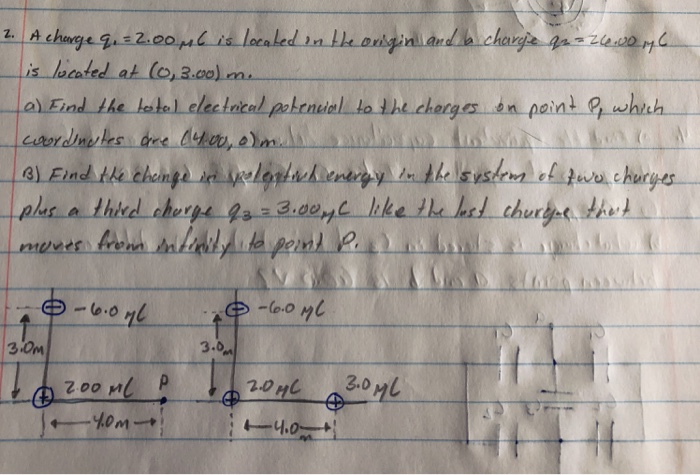 2. A charge q₁ = 2.00 μC is located in the origin and a charge q₂ = 26.00 μC
is located at (0, 3.00) m.
a) Find the total electrical potencial to the charges on point P, which
coordinates are (4.00, 0) m.
B) Find the change in potential energy in the system of two charges
plus a third charge q₃ = 3.00 μC like the last charge that
moves from infinity to point P.
-6.0 μC
-6.0 μC
3.0m
3.0m
2.00 μC P
2.0 μC
3.0 μC
4.0m
4.0m